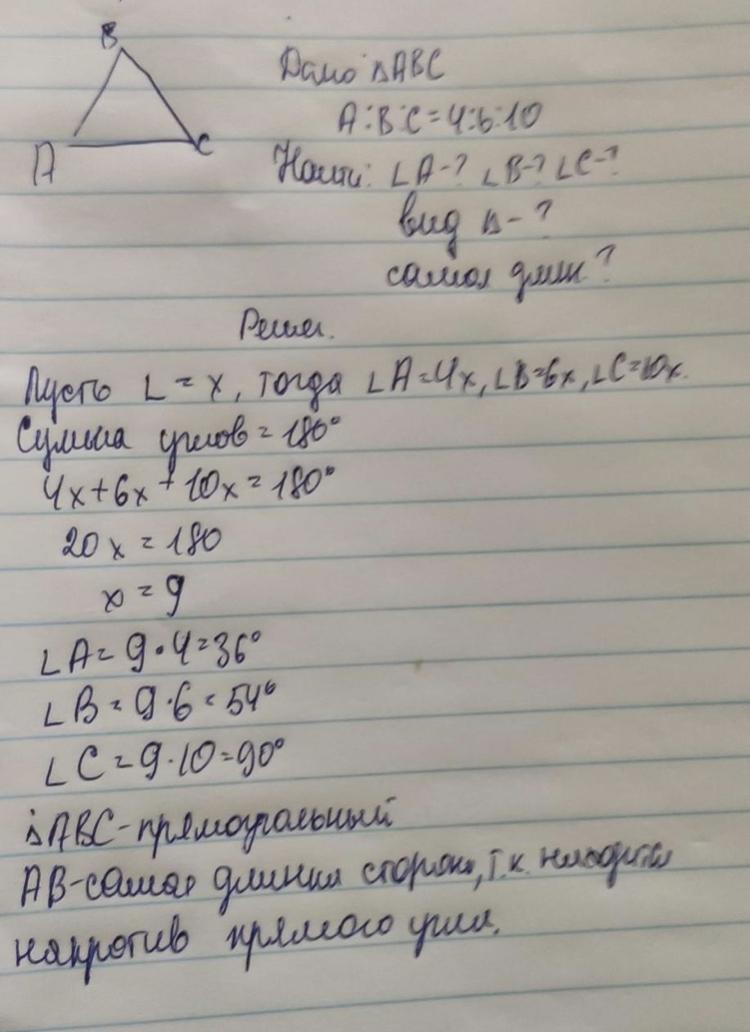 B
A
C
Дано ΔABC
A:B:C=4:6:10
Найти: ∠A-? ∠B-? ∠C-?
вид Δ-?
самая длин?
Решен.
Пусть ∠ = x, тогда ∠A=4x, ∠B=6x, ∠C=10x.
Сумма углов = 180°
4x+6x+10x=180°
20x=180
x=9
∠A=9·4=36°
∠B=9·6=54°
∠C=9·10=90°
ΔABC-прямоугольный
AB-самая длинная сторона, т.к. находится
напротив прямого угла.